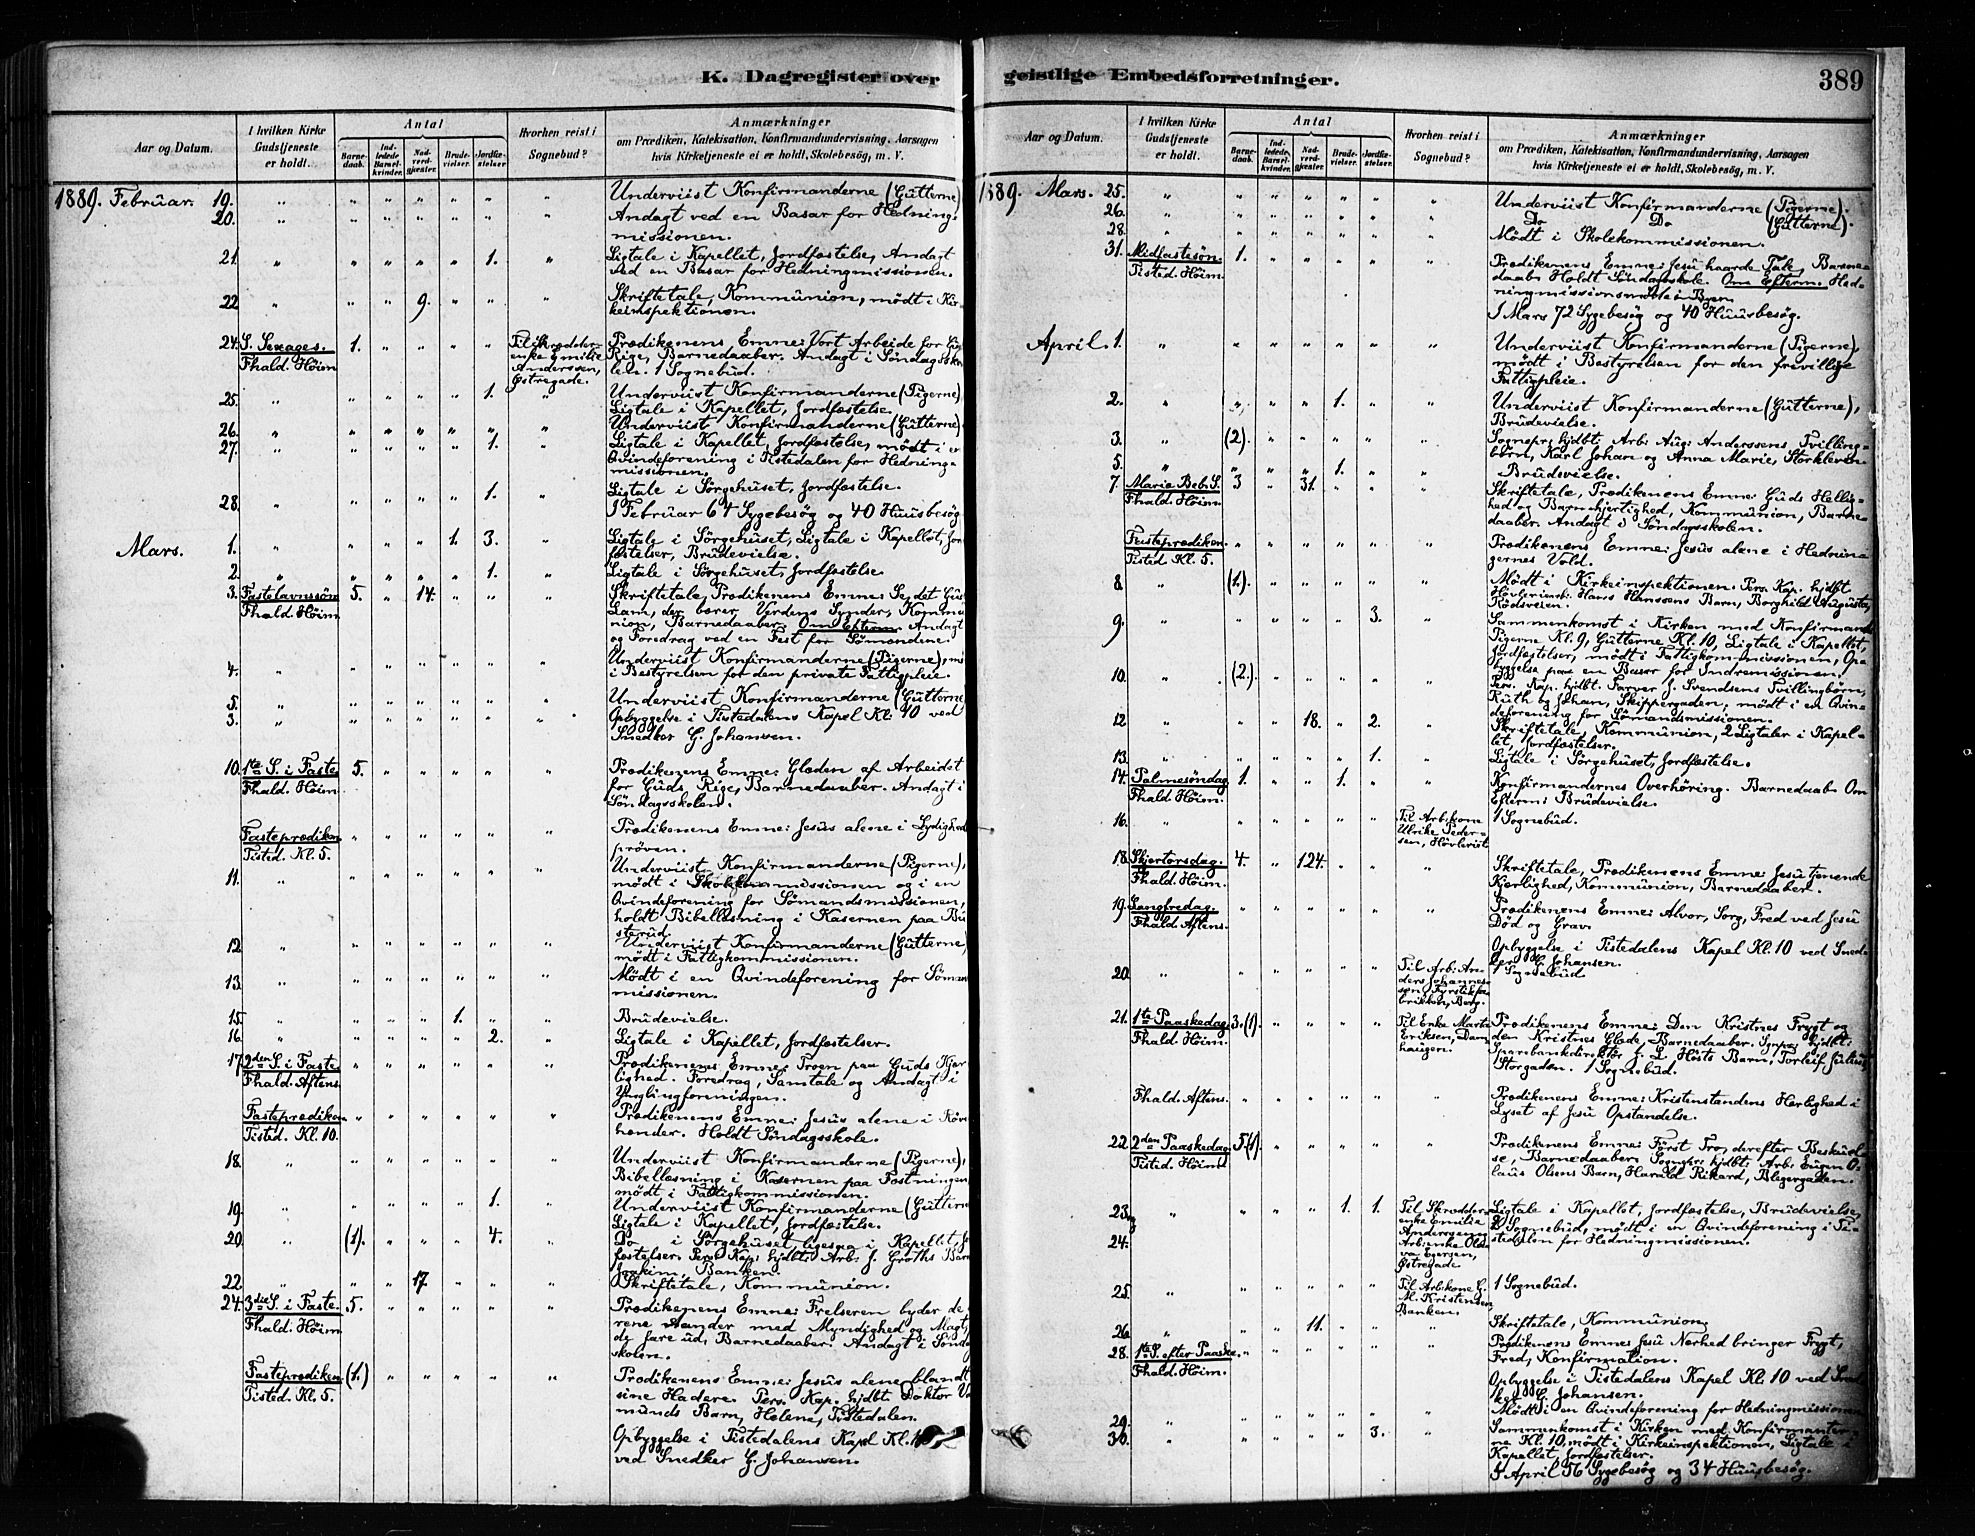 K. Dagregister over
Aar og Datum.
I hvilken Kirke Gudstjeneste er holdt.
Antal
Barnedaab. Indledede Barselkvinder. Nadverdgjester. Brudevielser. Jordfæstelser.
Hvorhen reist i Sognebud?
Anmærkninger
om Prædiken, Katekisation, Konfirmandundervisning, Aarsagen
hvis Kirketjeneste ei er holdt, Skolebesøg, m. V.
1889. Februar. 19. " " " " " " " Underviist Konfirmanderne (Gutterne)
20. " " " " " " " Andagt ved en Basar for Hedning-
missionen.
21. " " " " " 1. " Ligtale i Kapellet, Jordfæstelse, Andagt
ved en Basar for Hedningmissionen.
22 " " " 9. " " " Skriftetale, Kommunion, mødt i Kir-
keinspektionen.
24. S. Sexages. 1. " " " " Til Skrædder- Prædikenens Emne: Vort Arbeide for Guds
Fhald. Høim. enke Emilie Rige, Barnedaaber. Andagt i Søndagssko-
Anderssen, len. 1 Sognebud.
Østregade.
25. " " " " " 1. " Underviist Konfirmanderne (Pigerne)
Ligtale i Kapellet, Jordfæstelse.
26. " " " " " " " Underviist Konfirmanderne (Gutterne)
27. " " " " " 1. " Ligtale i Kapellet, Jordfæstelse, mødt i en
Qvindeforening i Tistedalen for Hedning-
missionen.
28. " " " " " 1. " Ligtale i Sørgehuset, Jordfæstelse.
I Februar 64 Sygebesøg og 40 Huusbesøg
Mars. 1. " " " " 1. 3. " Ligtale i Sørgehuset, Ligtale i Kapellet, Jord-
fæstelser, Brudevielse.
2. " " " " " 1. " Ligtale i Sørgehuset, Jordfæstelse.
3. Fastelavnssøn. 5. " 14. " " " Skriftetale, Prædikenens Emne: Se, det Guds
Fhald. Høim. Lam, der bærer Verdens Synder, Kommu-
nion, Barnedaaber. Om Efterm. Andagt
og Foredrag ved en Fest for Sømændene.
4. " " " " " " " Underviist Konfirmanderne (Pigerne), mødt
i Bestyrelsen for den private Fattigpleie.
5. " " " " " " " Underviist Konfirmanderne (Gutterne
3. " " " " " " " Opbyggelse i Tistedalens Kapel Kl. 10 ved
Snedker G. Johansen.
10. 1ste S. i Faste 5. " " " " " Prædikenens Emne: Glæden af Arbeidet
Fhald. Høim. for Guds Rige, Barnedaaber. Andagt i
Søndagsskolen.
Fasteprædiken " " " " " " Prædikenens Emne: Jesus alene i Lydigheds-
Tisted. Kl. 5. prøven.
11. " " " " " " " Underviist Konfirmanderne (Pigerne),
mødt i Skolekommissionen og i en
Qvindeforening for Sømandsmissionen,
holdt Bibellæsning i Kasernen paa Bu-
sterud.
12. " " " " " " " Underviist Konfirmanderne (Gutterne)
mødt i Fattigkommissionen.
13. " " " " " " " Mødt i en Qvindeforening for Sømands-
missionen.
15. " " " " 1. " " Brudevielse.
16. " " " " " 2. " Ligtale i Kapellet, Jordfæstelser.
17. 2den S. i Faste " " " " " " Prædikenens Emne: Troen paa Guds Kjær-
Fhald. Aftens. lighed. Foredrag, Samtale og Andagt i
Ynglingforeningen.
Fasteprædiken " " " " " " Prædikenens Emne: Jesus alene i Røver-
Tisted. Kl. 10. hænder. Holdt Søndagsskole.
18. " " " " " " " Underviist Konfirmanderne (Pigerne),
Bibellæsning i Kasernen paa Fæstningen,
mødt i Fattigkommissionen.
19. " " " " " 1. " Underviist Konfirmanderne (Gutterne
Ligtale i Kapellet, Jordfæstelse.
20. " (1). " " " 4. " Do i Sørgehuset, ligesaa i Kapellet, Jord-
fæstelser. Pers. Kap. hjdbt. Arb. J. Groths Barn
Joakim, Banken.
22. " " " 17. " " " Skriftetale, Kommunion.
24. 3die S. i Faste. 5. " " " " " Prædikenens Emne: Frelseren byder de
Fhald. Høim. rene Aander med Myndighed og Magt,
de fare ud, Barnedaaber. Andagt i Søndags-
skolen.
Fasteprædiken (1.) " " " " " Prædikenens Emne: Jesus alene blandt
Tisted. Kl. 5. sine Hadere. Pers. Kap. hjdbt. Doktor
munds Barn, Helene, Tistedalen.
Opbyggelse i Tistedalens Kapel Kl. 10
ved Snedker G. Johansen.
geistlige Embedsforretninger. 389
Aar og Datum.
I hvilken Kirke Gudstjeneste er holdt.
Antal
Barnedaab. Indledede Barselkvinder. Nadverdgjester. Brudevielser. Jordfæstelser.
Hvorhen reist i Sognebud?
Anmærkninger
om Prædiken, Katekisation, Konfirmandundervisning, Aarsagen
hvis Kirketjeneste ei er holdt, Skolebesøg, m. V.
1889. Mars. 25. " " " " " " " Underviist Konfirmanderne (Pigerne).
26. " " " " " " " Do Do (Gutterne).
28. " " " " " " " Mødt i Skolekommissionen.
31. Midfastesøn. 1. " " " " " Prædikenens Emne: Jesu haarde Tale, Barne-
Tisted. Høim. daab. Holdt Søndagsskole. Om Efterm. Hed-
ningmissionsmøde i Byen.
I Mars 72 Sygebesøg og 40 Huusbesøg.
April. 1. " " " " " " " Underviist Konfirmanderne (Pigerne),
mødt i Bestyrelsen for den frivillige
Fattigpleie.
2. " " " " 1. " " Underviist Konfirmanderne (Gutterne),
Brudevielse.
3. " (2). " " " " " Sognepr. hjdbt. Arb. Aug. Anderssens Tvilling-
børn, Karl Johan og Anna Marie, Storkleven.
5. " " " " 1. " " Brudevielse.
7. Mariæ Beb. S. 3 " 31. " " " Skriftetale, Prædikenens Emne: Guds Hellig-
Fhald. Høim. hed og Barmhjertighed, Kommunion, Barne-
daaber. Andagt i Søndagsskolen.
Fasteprædiken. " " " " " " Prædikenens Emne: Jesus alene i Hednin-
Tisted Kl. 5. gernes Vold.
8. " (1.) " " " " " Mødt i Kirkeinspektionen. Pers. Kap. hjdbt
Høvleriarb. Hans Hanssens Barn, Borghild Augusta,
Rødsveien.
9. " " " " " 3. " Sammenkomst i Kirken med Konfirmand.
Pigerne Kl. 9, Gutterne Kl. 10, Ligtale i Kapellet,
Jordfæstelser, mødt i Fattigkommissionen, Op-
byggelse paa en Basar for Indremissionen.
10. " (2.) " " " " " Pers. Kap. hjdbt. Farver J. Svendsens Tvillingbørn,
Ruth og Johan, Skippergaden; mødt i en Qvin-
deforening for Sømandsmissionen.
12 " " " 18. " 2. " Skriftetale, Kommunion, 2 Ligtaler i Kapel-
let, Jordfæstelser.
13. " " " " " 1. " Ligtale i Sørgehuset, Jordfæstelse.
14. Palmesøndag 1. " " 1. " " Konfirmandernes Overhøring. Barnedaab. Om
Fhald. Høim. Efterm: Brudevielse.
16. " " " " " " Til Arb.kone 1 Sognebud.
Ulrike Peder-
sen, Høvleriet.
18. Skjertorsdag. 4. " 124. " " " Skriftetale, Prædikenens Emne Jesu tjenende
Fhald. Høim. Kjærlighed, Kommunion, Barnedaaber.
19. Langfredag. " " " " " " Prædikenens Emne: Alvor, Sorg, Fred ved Jesu
Fhald. Aftens. Død og Grav.
Opbyggelse i Tistedalens Kapel Kl. 10 ved Sned-
ker G. Johansen.
20. " " " " " " Til Arb. An- 1 Sognebud
ders Johannes-
sen, Fyrstikfa-
brikken, Berg.
21. 1ste Paaskedag 3.(1) " " " " Til Enke Marte Prædikenens Emne: Den Kristnes Frygt og
Fhald. Høim. Eriksen, Dam- den Kristnes Glæde, Barnedaaber. Sognpr. hjdbt:
haugen. Sparebankdirektør J. L. Høsts Barn, Torleif Julius,
Storgaden. 1 Sognebud.
Fhald. Aftens. " " " " " " Prædikenens Emne: Kristenstandens Herlighed i
Lyset af Jesu Opstandelse.
22. 2den Paaskedag 5.(1). " " " " " Prædikenens Emne: Først Tro, derefter Beskuel-
Tisted. Høim. se, Barnedaaber. Sognepr. hjdbt: Arb. Eugen O-
laus Olsens Barn, Harald Rikard, Blegergaden.
23. og " " " " 1. 1. Til Skrædder- Ligtale i Kapellet, Jordfæstelse, Brudevielse,
24. enke Emilie 2 Sognebud, mødt i en Qvindeforening i Ti-
Anderssen, stedalen for Hedningmissionen.
Arb:enke
Østregade
25. " " " " " " Til Arb.kone G. 1 Sognebud.
M. Kristensen
Banken.
26. " " " 11. " " " Skriftetale, Kommunion
28. 1ste S. efter Paaske. " " " " " " Prædikenens Emne: Jesu Nærhed bringer Frygt,
Fhald. Høim. Fred, Konfirmation.
Opbyggelse i Tistedalens Kapel Kl. 10 ved Sned-
ker G. Johansen.
29. " " " " " " " Mødt i en Qvindeforening for Hedningmissionen.
30. " " " " " 3. " Sammenkomst i Kirken med Konfirmanter-
ne Kl. 10, mødt i Kirkeinspektionen, Ligtale i
Kapellet, Jordfæstelser.
I April 56 Sygebesøg og 34 Huusbesøg.